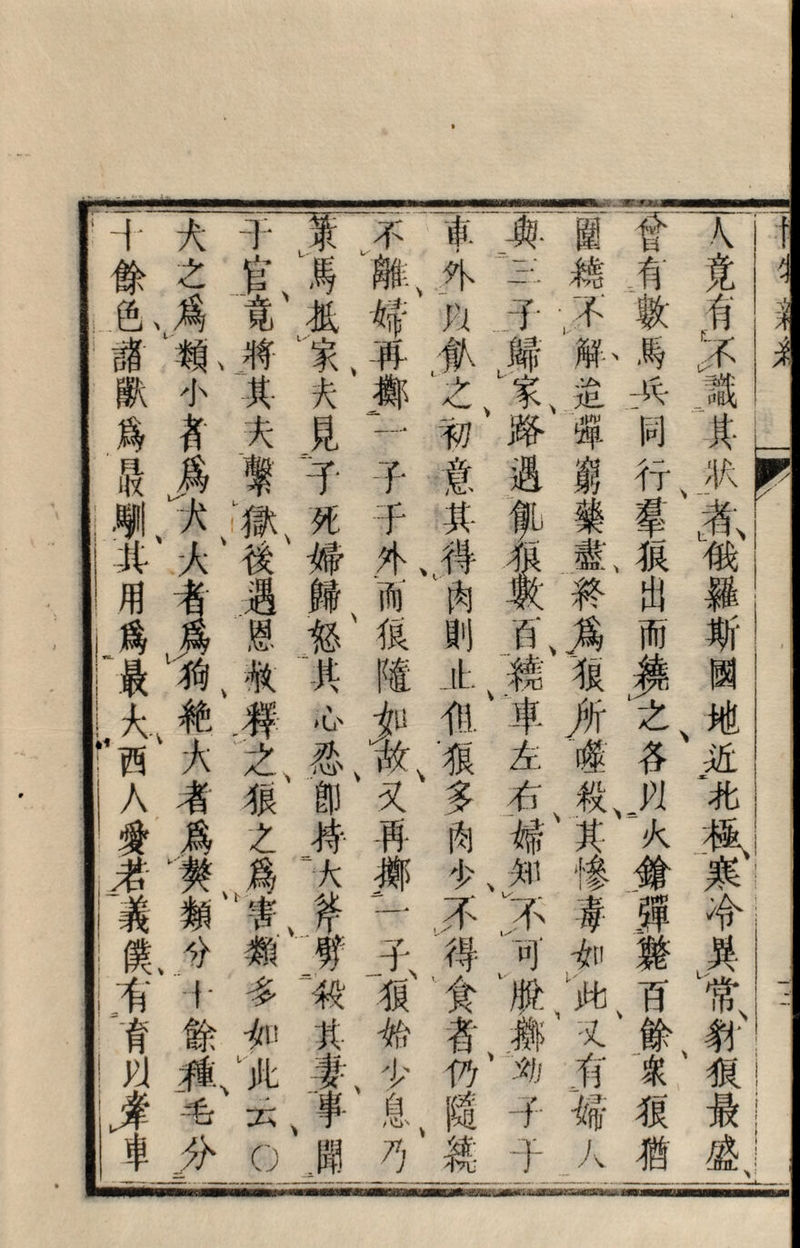 博物新編
人竟有不識其狀者、俄羅斯國地近北極、寒冷異常、豺狼最盛、
曾有數馬兵同行、羣狼出而繞之、各以火鎗彈斃百餘、衆狼猶
圍繞不解、迨彈窮藥盡、終爲狼所噬殺、其慘毒如此、又有婦人
與三子歸家、路遇飢狼數百、繞車左右、婦知不可脫、擲幼子于
車外以飤之、初意其得肉則止、但狼多肉少、不得食者、仍隨繞
不離、婦再擲一子于外、而狼隨如故、又再擲一子、狼始少息、乃
策馬抵家、夫見子死婦歸、怒其心忍、卽持大斧劈殺其妻、事聞
于官、竟將其夫繫獄、後遇恩赦釋之、狼之爲害、類多如此云、〇
犬之爲類、小者爲犬、大者爲狗、絶大者爲獒、類分十餘種、毛分
十餘色、諸獸爲最馴、其用爲最大、西人愛若義僕、有育以牽車